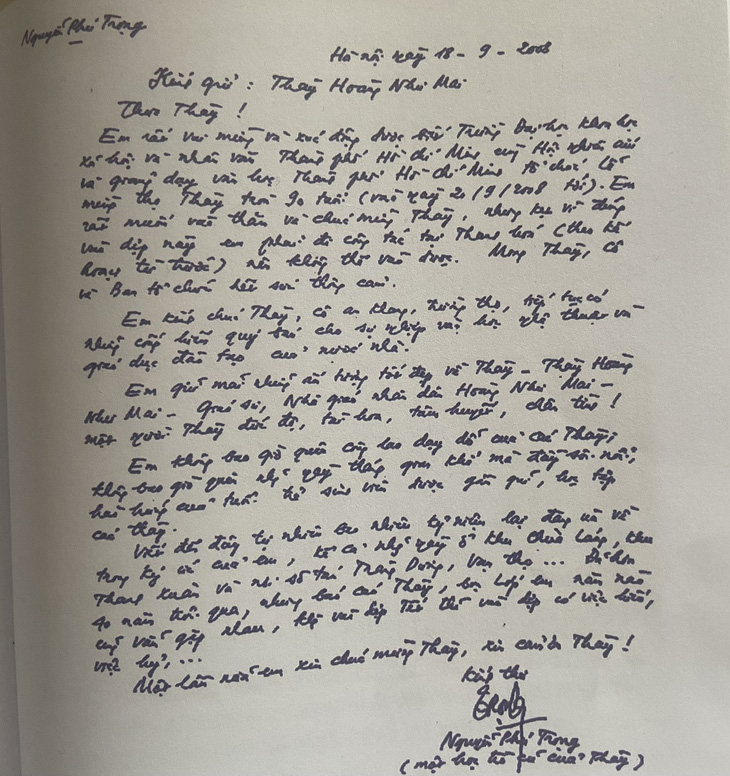 Nguyễn Phú Trọng
Hà nội ngày 18 - 9 - 2008
Kính gửi : Thầy Hoàng Như Mai
Thưa Thầy !
Em rất vui mừng và xúc động được biết Trường Đại học khoa học
xã hội và nhân văn Thành phố Hồ Chí Minh cùng Hội nghiên cứu
và giảng dạy văn học Thành phố Hồ Chí Minh tổ chức Lễ
mừng thọ Thầy tròn 90 tuổi (vào ngày 20/9/2008 tới). Em
rất muốn vào thăm và chúc mừng Thầy, nhưng vì đúng
vào dịp này em phải đi công tác tại Thanh hoá (theo kế
hoạch từ trước) nên không thể vào được. Mong Thầy, Cô
và Ban tổ chức hết sức thông cảm.
Em kính chúc Thầy, Cô an khang, trường thọ, tiếp tục có
những cống hiến quý báu cho sự nghiệp văn học nghệ thuật và
giáo dục đào tạo của nước nhà.
Em giữ mãi những ấn tượng tốt đẹp về Thầy - Thầy Hoàng
Như Mai - Giáo sư, Nhà giáo nhân dân Hoàng Như Mai -
một người Thầy đức độ, tài hoa, tâm huyết, chân tình !
Em không bao giờ quên công lao dạy dỗ của các Thầy;
không bao giờ quên những ngày tháng gian khổ mà đầy sôi nổi,
hào hứng của tuổi trẻ sinh viên được gần gũi, học tập
các thầy.
Viết đến đây tự nhiên bao nhiêu kỷ niệm lại đang ùa về
trong ký ức của em, kể cả những ngày ở khu Chùa Láng, khu
Thanh Xuân và nơi sơ tán Tràng Dương, Vạn Thọ ... Đã hơn
40 năm trôi qua, nhưng các Thầy, bọn Lớp em năm nào
cũng vẫn gặp nhau, khi vào dịp Tết thì vào dịp có việc hiếu,
việc hỷ, ...
Một lần nữa em xin chúc mừng Thầy, xin cảm ơn Thầy !
Kính thư
Trọng
Nguyễn Phú Trọng
(một học trò cũ của Thầy)